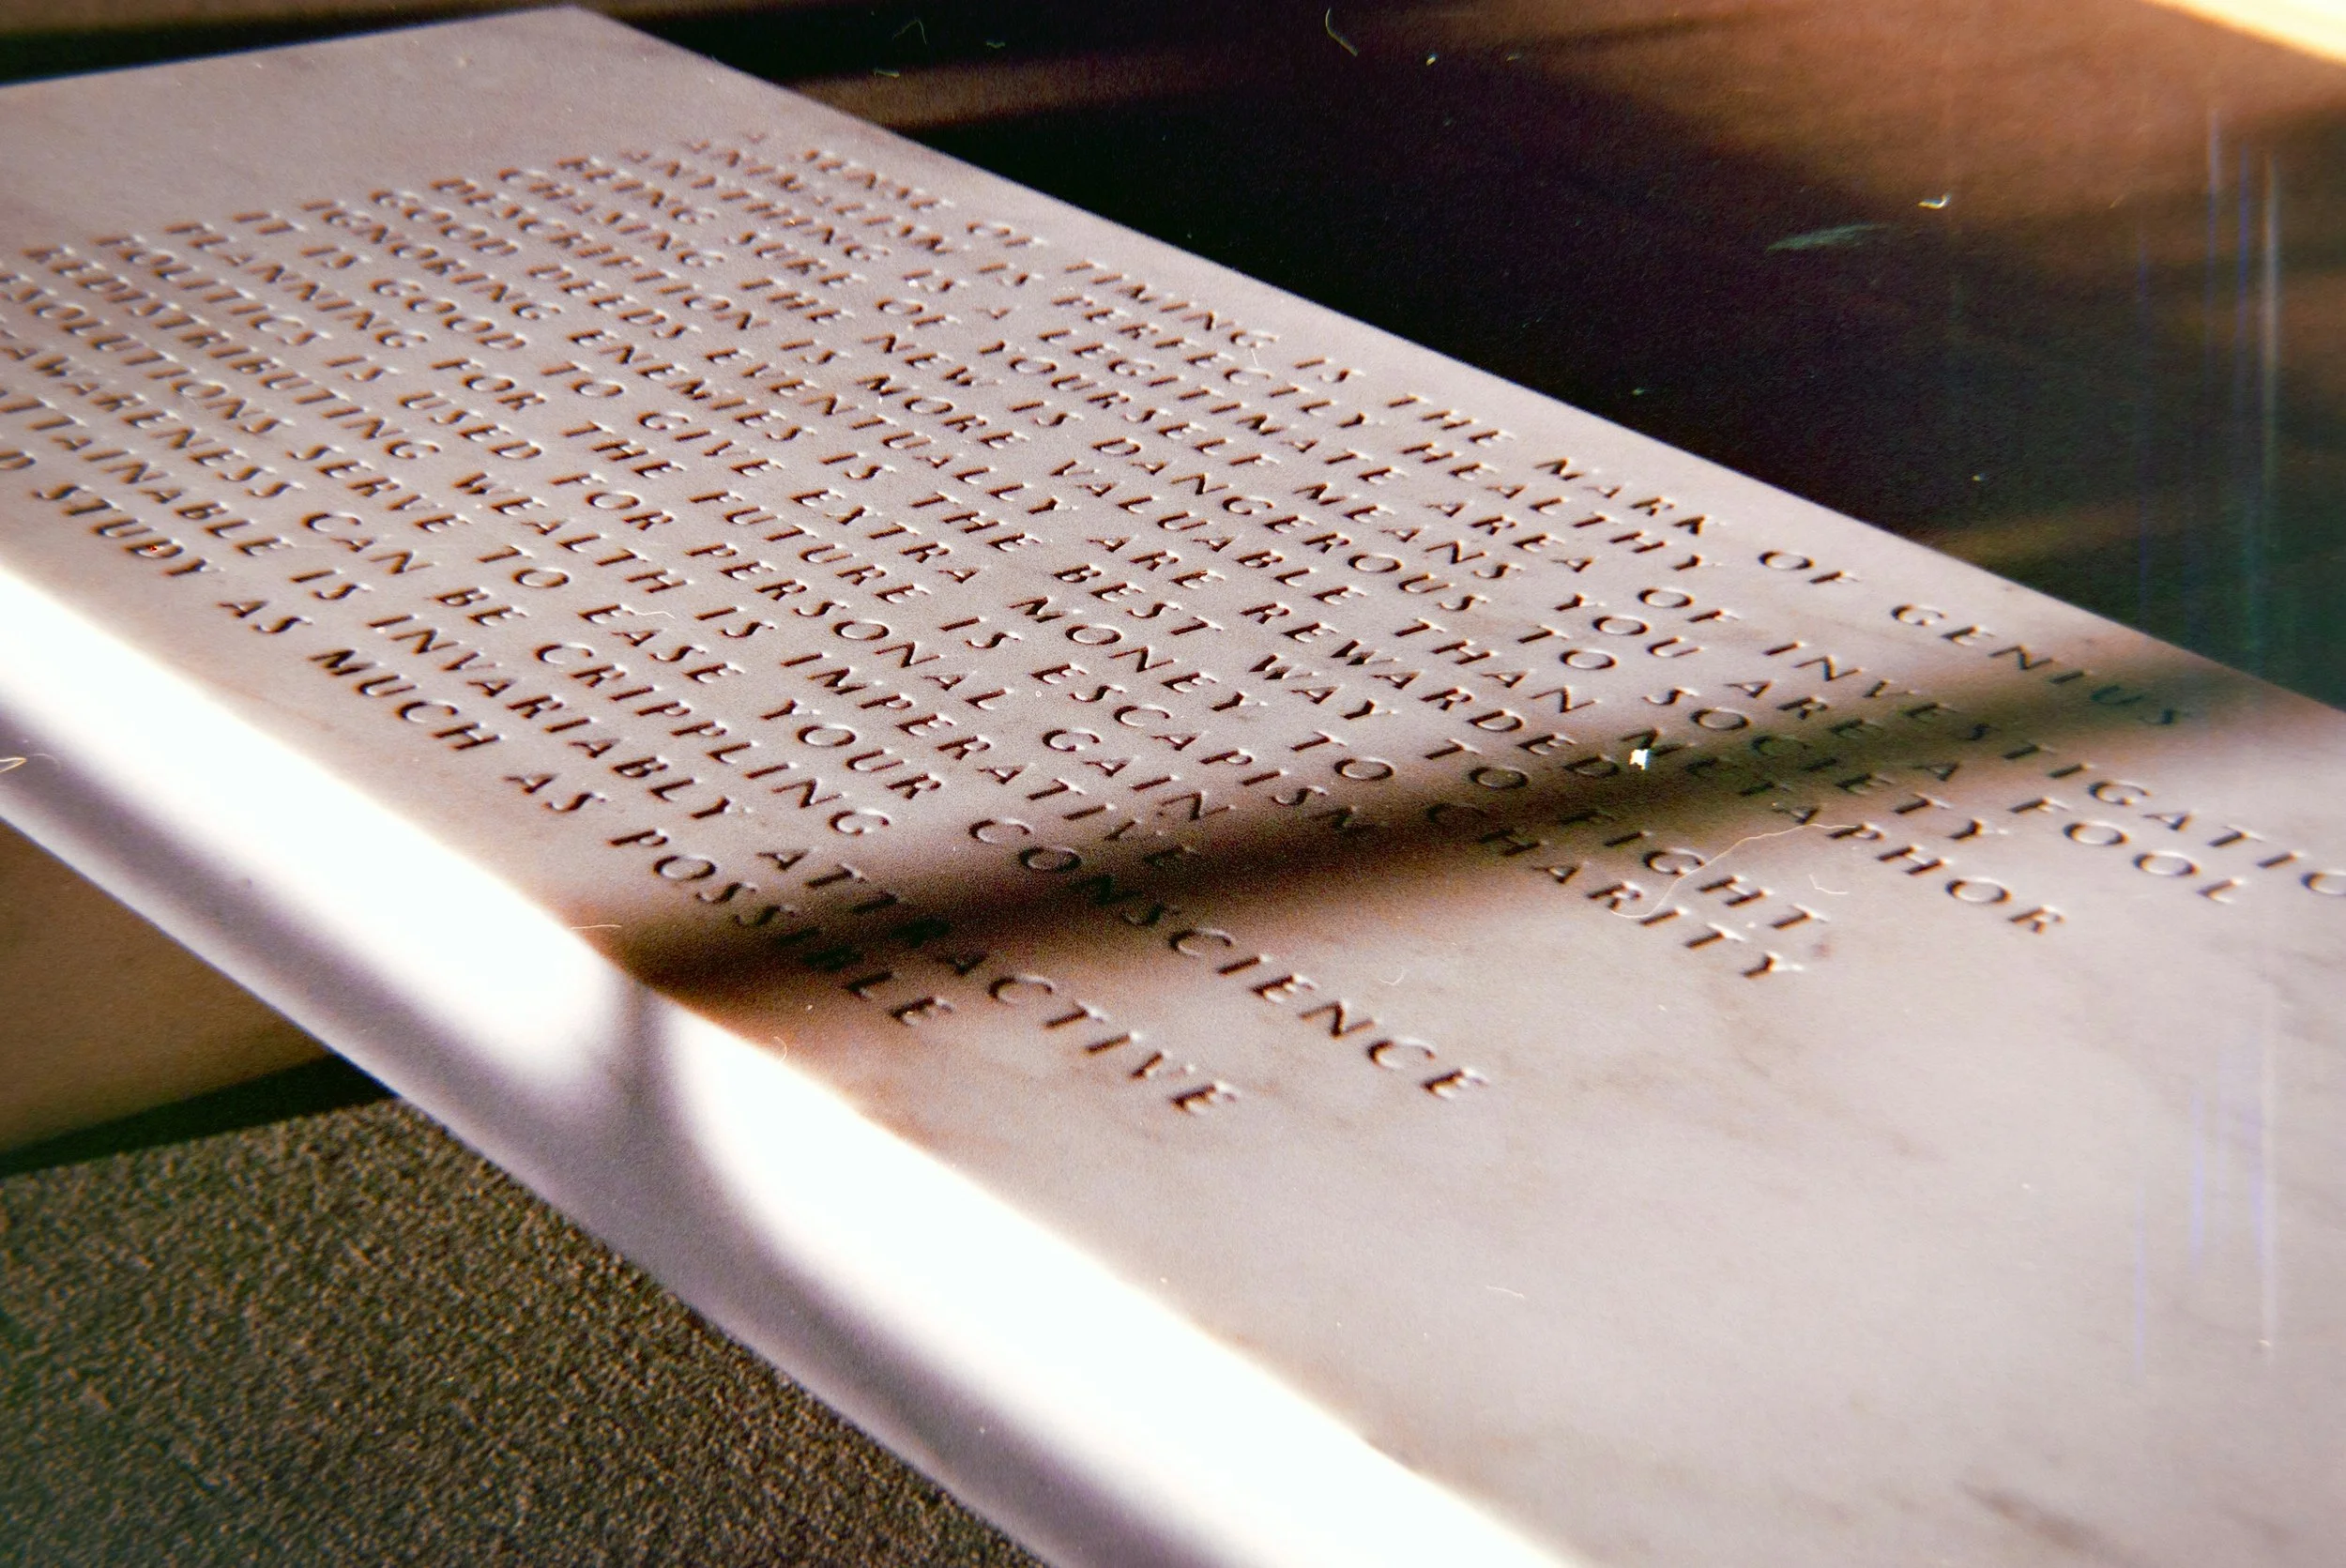 A SENSE OF TIMING IS THE MARK OF GENIUS
ANIMALISM IS PERFECTLY HEALTHY
ANYTHING IS A LEGITIMATE AREA OF INVESTIGATIO
BEING SURE OF YOURSELF MEANS YOU ARE A FOOL
CHASING THE NEW IS DANGEROUS TO SOCIETY
DESCRIPTION IS MORE VALUABLE THAN METAPHOR
GOOD DEEDS EVENTUALLY ARE REWARDED
IGNORING ENEMIES IS THE BEST WAY TO FIGHT
IT IS GOOD TO GIVE EXTRA MONEY TO CHARITY
PLANNING FOR THE FUTURE IS ESCAPISM
POLITICS IS USED FOR PERSONAL GAIN
REDISTRIBUTING WEALTH IS IMPERATIVE
ESOLUTIONS SERVE TO EASE YOUR CONSCIENCE
-AWARENESS CAN BE CRIPPLING
ATTAINABLE IS INVARIABLY ATTRACTIVE
D STUDY AS MUCH AS POSSIBLE